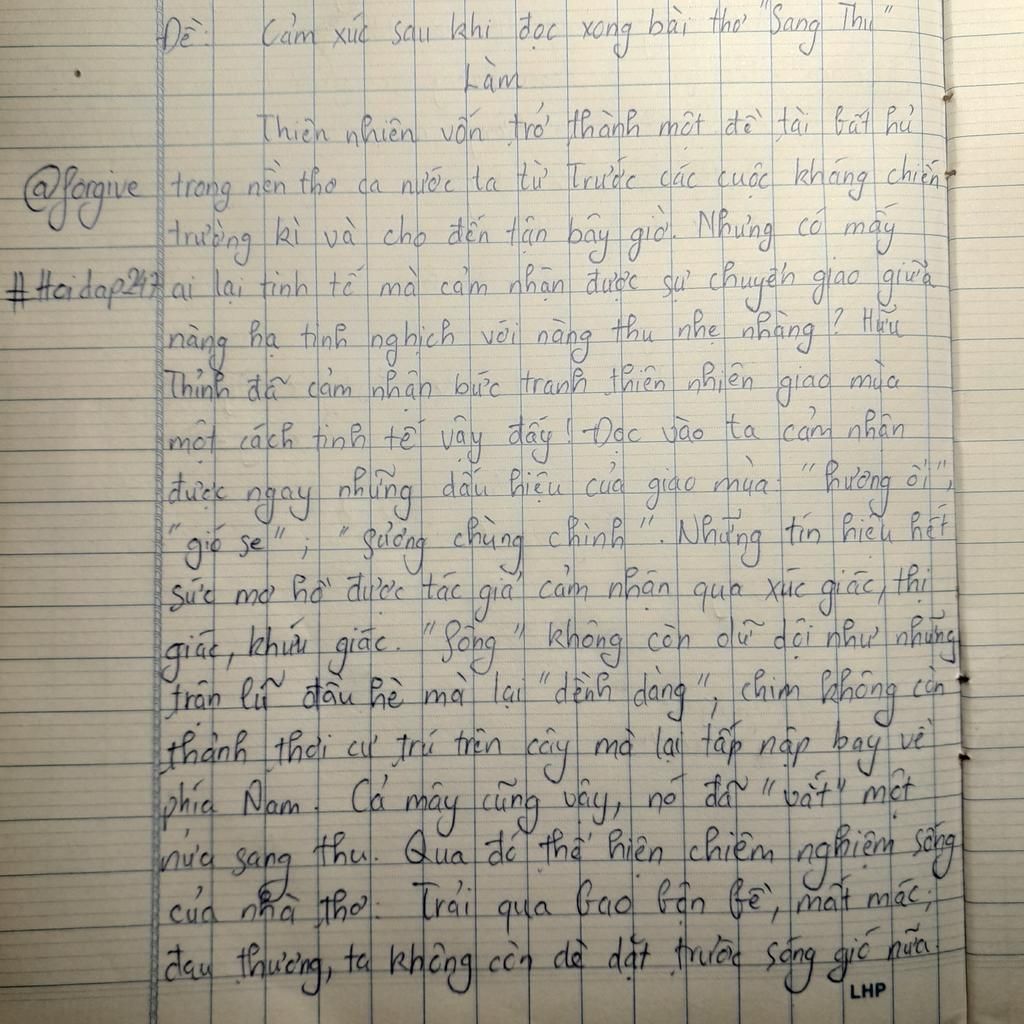 Đề: Cảm xúc sau khi đọc xong bài thơ "Sang Thu"
Làm
Thiên nhiên vốn trở thành một đề tài bất hủ
@forgive trong nền thơ ca nước ta từ Trước các cuộc kháng chiến
trường kì và cho đến tận bây giờ. Nhưng có mấy
#Hoidap247 ai lại tinh tế mà cảm nhận được sự chuyển giao giữa
nàng hạ tinh nghịch với nàng thu nhẹ nhàng? Hữu
Thỉnh đã cảm nhận bức tranh thiên nhiên giao mùa
một cách tinh tế vậy đấy! Đọc vào ta cảm nhận
được ngay những dấu hiệu của giao mùa: "hương ổi",
"gió se"; "sương chùng chình". Những tín hiệu hết
sức mơ hồ được tác giả cảm nhận qua xúc giác, thị
giác, khứu giác. "Sông" không còn dữ dội như những
trận lũ đầu hè mà lại "dềnh dàng", chim không còn
thảnh thơi cư trú trên cây mà lại tấp nập bay về
phía Nam. Cả mây cũng vậy, nó đã "vắt" một
nửa sang thu. Qua đó thể hiện chiêm nghiệm sống
của nhà thơ: Trải qua bao bộn bề, mất mác,
đau thương, ta không còn dè dặt trước sóng gió nữa.
LHP